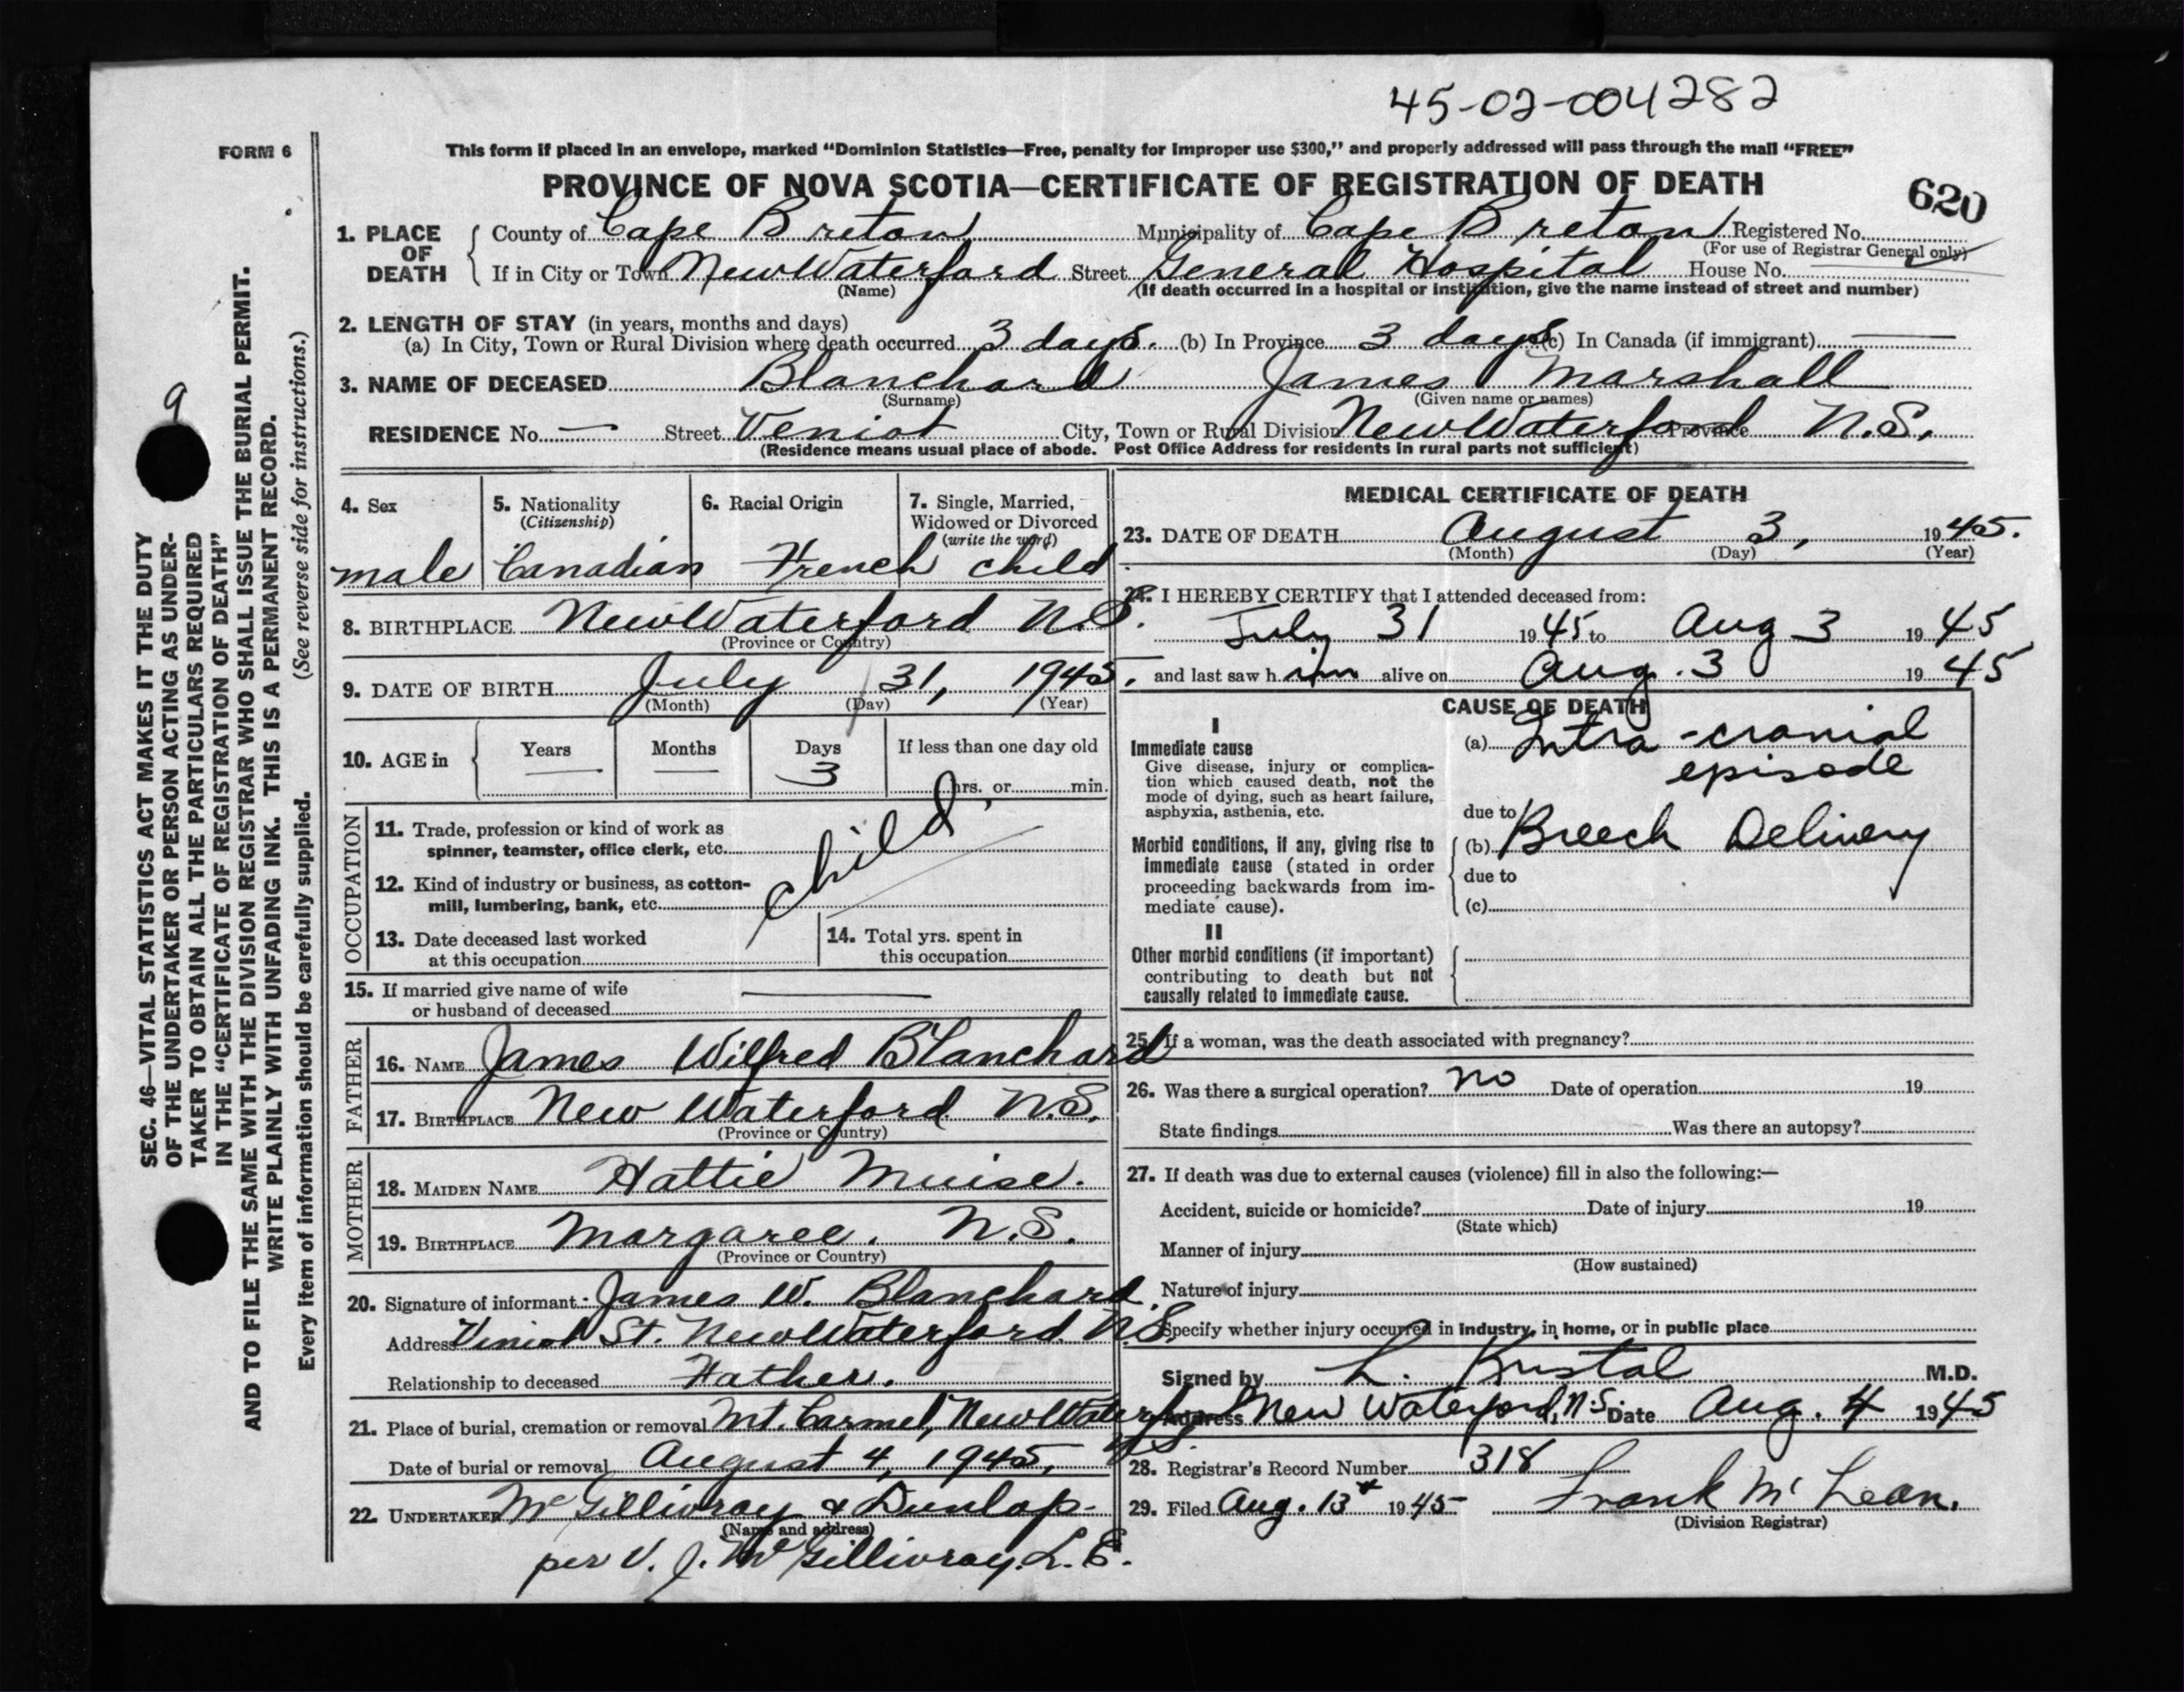 45-02-004282
FORM 6
This form if placed in an envelope, marked "Dominion Statistics—Free, penalty for improper use $300," and properly addressed will pass through the mail "FREE"
PROVINCE OF NOVA SCOTIA—CERTIFICATE OF REGISTRATION OF DEATH
620
1. PLACE OF DEATH
County of Cape Breton Municipality of Cape Breton Registered No.
(For use of Registrar General only)
If in City or Town New Waterford Street General Hospital House No.
(Name) (If death occurred in a hospital or institution, give the name instead of street and number)
2. LENGTH OF STAY (in years, months and days)
(a) In City, Town or Rural Division where death occurred 3 days. (b) In Province 3 days (c) In Canada (if immigrant) —
3. NAME OF DECEASED Blanchard James Marshall
(Surname) (Given name or names)
RESIDENCE No. — Street Veniot City, Town or Rural Division New Waterford Province N.S.
(Residence means usual place of abode. Post Office Address for residents in rural parts not sufficient)
4. Sex
male
5. Nationality
(Citizenship)
Canadian
6. Racial Origin
French
7. Single, Married,
Widowed or Divorced
(write the word)
child
8. BIRTHPLACE New Waterford N.S.
(Province or Country)
9. DATE OF BIRTH July 31, 1945.
(Month) (Day) (Year)
10. AGE in
Years —
Months —
Days 3
If less than one day old
hrs. or min.
OCCUPATION
11. Trade, profession or kind of work as
spinner, teamster, office clerk, etc.
child
12. Kind of industry or business, as cotton-
mill, lumbering, bank, etc.
13. Date deceased last worked
at this occupation
14. Total yrs. spent in
this occupation
15. If married give name of wife
or husband of deceased —
FATHER
16. NAME James Wilfred Blanchard
17. BIRTHPLACE New Waterford N.S.
(Province or Country)
MOTHER
18. MAIDEN NAME Hattie Muise.
19. BIRTHPLACE Margaree. N.S.
(Province or Country)
20. Signature of informant James W. Blanchard.
Address Viniot St. New Waterford N.S.
Relationship to deceased Father.
21. Place of burial, cremation or removal Mt. Carmel, New Waterford N.S.
Date of burial or removal August 4, 1945.
22. UNDERTAKER McGillivray & Dunlop-
(Name and address)
per V. J. McGillivray. L. E.
MEDICAL CERTIFICATE OF DEATH
23. DATE OF DEATH August 3, 1945.
(Month) (Day) (Year)
24. I HEREBY CERTIFY that I attended deceased from:
July 31 1945 to Aug 3 1945
and last saw him alive on Aug. 3 1945
CAUSE OF DEATH
I
Immediate cause
Give disease, injury or complica-
tion which caused death, not the
mode of dying, such as heart failure,
asphyxia, asthenia, etc.
(a) Intra-cranial
episode
due to
Morbid conditions, if any, giving rise to
immediate cause (stated in order
proceeding backwards from im-
mediate cause).
(b) Breech Delivery
due to
(c)
II
Other morbid conditions (if important)
contributing to death but not
causally related to immediate cause.
25. If a woman, was the death associated with pregnancy?
26. Was there a surgical operation? no Date of operation 19
State findings Was there an autopsy?
27. If death was due to external causes (violence) fill in also the following:—
Accident, suicide or homicide? Date of injury 19
(State which)
Manner of injury
(How sustained)
Nature of injury
Specify whether injury occurred in industry, in home, or in public place
Signed by L. Kristal M.D.
Address New Waterford, N.S. Date Aug. 4 1945
28. Registrar's Record Number 318
29. Filed Aug. 13 1945 Frank McLean.
(Division Registrar)
9
SEC. 46—VITAL STATISTICS ACT MAKES IT THE DUTY
OF THE UNDERTAKER OR PERSON ACTING AS UNDER-
TAKER TO OBTAIN ALL THE PARTICULARS REQUIRED
IN THE "CERTIFICATE OF REGISTRATION OF DEATH"
AND TO FILE THE SAME WITH THE DIVISION REGISTRAR WHO SHALL ISSUE THE BURIAL PERMIT.
WRITE PLAINLY WITH UNFADING INK. THIS IS A PERMANENT RECORD.
Every item of information should be carefully supplied. (See reverse side for instructions.)